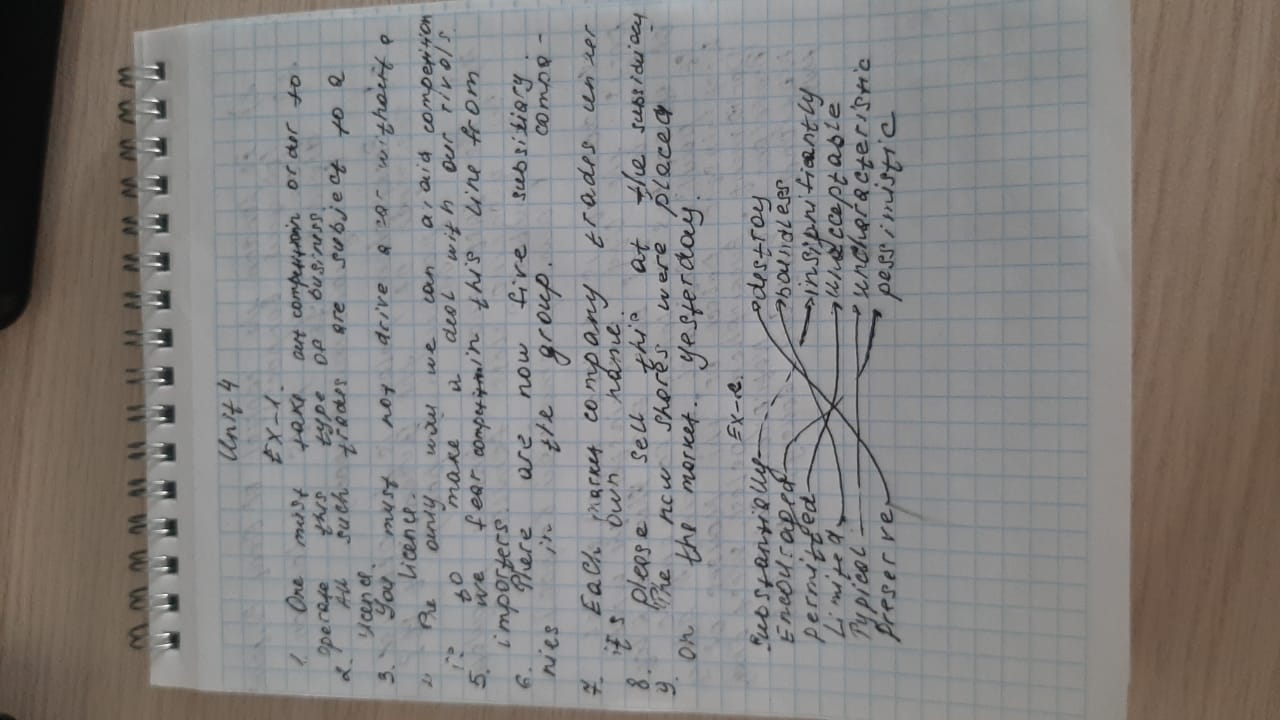 Unit 4
Ex-1.
1. One mist take out competition order to
operate this type of business.
2. All such trades are subject to a
3. You must not drive a car without a
licence.
The only way we can avoid competition
is to make a deal with our rivals
5. we fear competition in this line from
importers.
6. There are now five subsitiary compa-
nies in the group.
7. Each market company trades under
its own name.
8. please sell this at the subsidiary
9. The new shares were placed
on the market. yesterday.
Ex-2.
Substantially destroy
Encouraged boundless
Permitted insignificantly
Limited unacceptable
Typical uncharacteristic
Preserve pessimistic